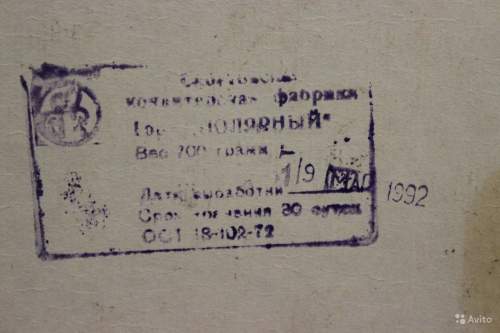 кондитерская фабрика
Торт "ПОЛЯРНЫЙ"
Вес 700 грамм
1/9 МАР 1992
Дата выработки
Срок хранения 30 суток
ОСТ 18-102-72
Avito